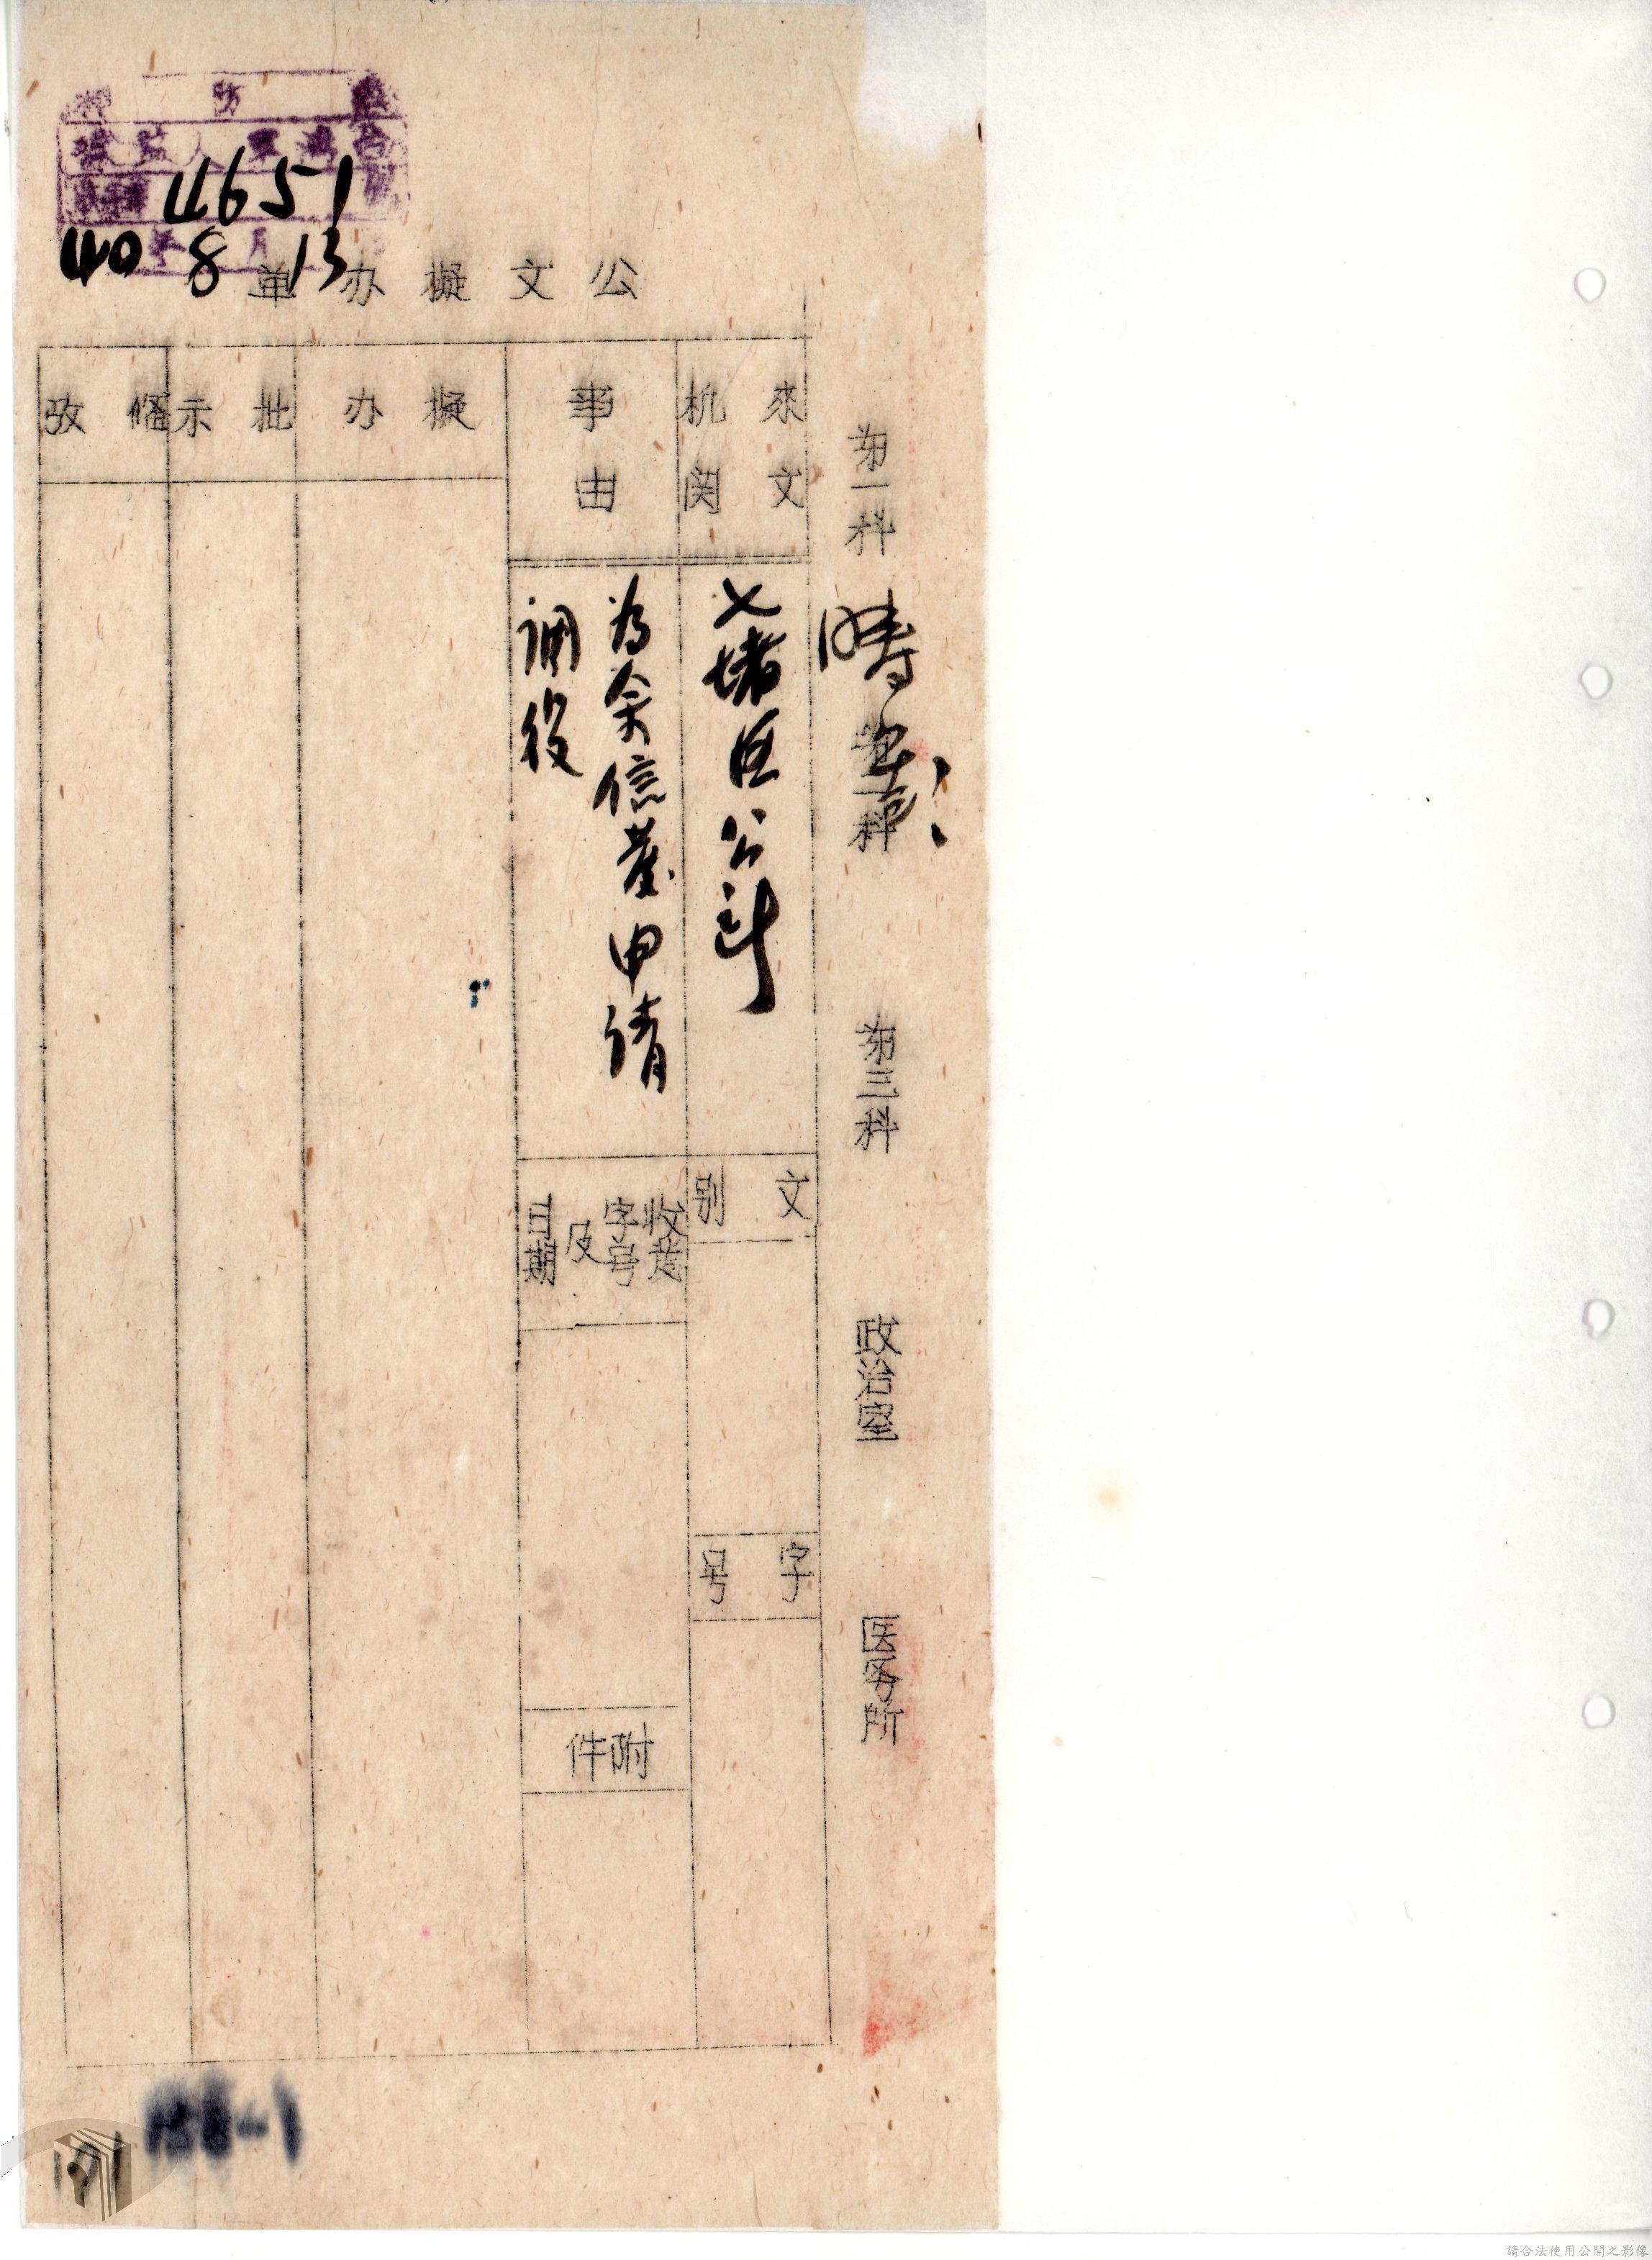 4651
40 8 13
公文擬办单
第一科
第三科
政治室
医务所
來文
机関
七堵区公所
文别
字号
事由
为余信基申請
調役
收发
字号
及
日期
附件
擬办
批示
俻攷
158-1
請合法使用公開之影像